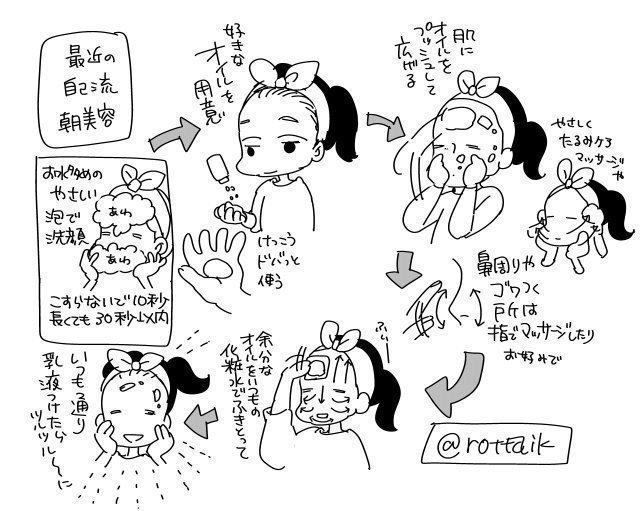 最近の
自己流
朝美容
お水多めの
やさしい
泡で
洗顔
あわ
あわ
こすらないで10秒
長くても30秒以内
好きな
オイルを
用意
けっこう
ドバっと
使う
肌に
オイルを
プッシュして
広げる
やさしく
たるみケア
マッサージや
鼻周りや
ゴワつく
戸斤は
指でマッサージしたり
お好みで
余分な
オイルをいつもの
化粧水でふきとって
ふぅー
いつも通り
乳液つけたら
ツルツル〜に
@rottaik